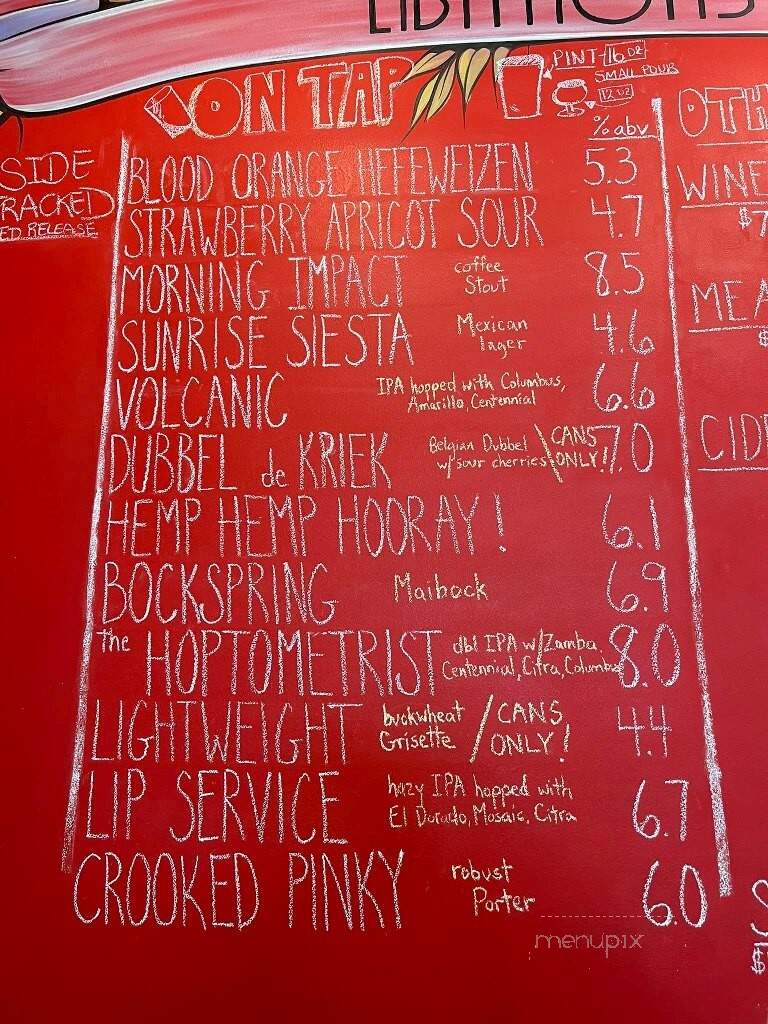 ON TAP
PINT-16 OZ
SMALL POUR
12 OZ
% abv
SIDE
RACKED
ED RELEASE
BLOOD ORANGE HEFEWEIZEN 5.3
STRAWBERRY APRICOT SOUR 4.7
MORNING IMPACT coffee Stout 8.5
SUNRISE SIESTA Mexican lager 4.6
VOLCANIC IPA hopped with Columbus, Amarillo, Centennial 6.6
DUBBEL de KRIEK Belgian Dubbel w/sour cherries \ CANS ONLY! 7.0
HEMP HEMP HOORAY! 6.1
BOCKSPRING Maibock 6.9
the HOPTOMETRIST dbl IPA w/Zamba, Centennial, Citra, Columbus 8.0
LIGHTWEIGHT buckwheat Grisette / CANS ONLY! 4.4
LIP SERVICE hazy IPA hopped with El Dorado, Mosaic, Citra 6.7
CROOKED PINKY robust Porter 6.0
OTH
WINE
$7
MEA
$
CID
$
menupix